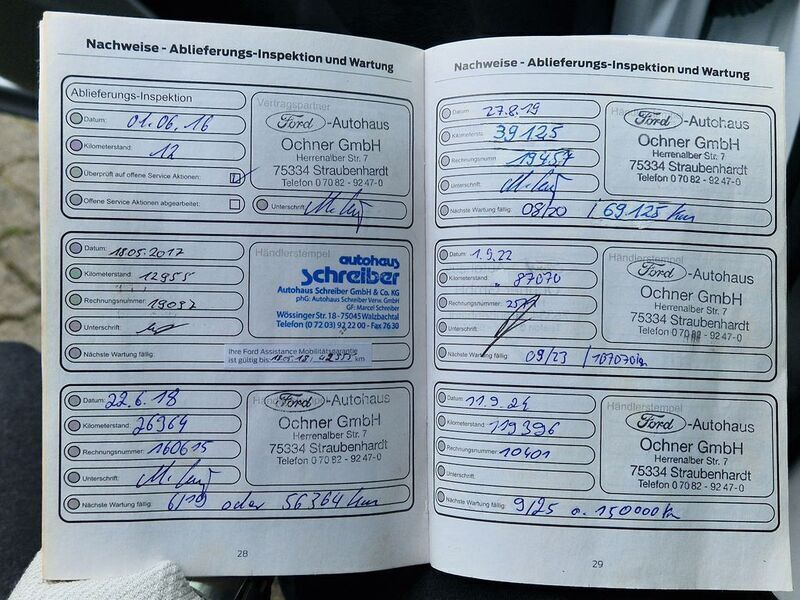 Nachweise - Ablieferungs-Inspektion und Wartung
Ablieferungs-Inspektion
Datum: 01.06.16
Kilometerstand: 12
Überprüft auf offene Service Aktionen:
Offene Service Aktionen abgearbeitet:
Vertragspartner
Ford-Autohaus
Ochner GmbH
Herrenalber Str. 7
75334 Straubenhardt
Telefon 0 70 82 - 92 47-0
Unterschrift:
Datum: 18.05.2017
Kilometerstand: 12955
Rechnungsnummer: 19052
Unterschrift:
Nächste Wartung fällig:
Händlerstempel
autohaus
schreiber
Autohaus Schreiber GmbH & Co. KG
phG: Autohaus Schreiber Verw. GmbH
GF: Marcel Schreiber
Wössinger Str. 18 - 75045 Walzbachtal
Telefon (0 72 03) 92 22 00 - Fax 76 30
Ihre Ford Assistance Mobilitätsgarantie
ist gültig bis: 18.05.18 / km
Datum: 22.6.18
Kilometerstand: 26364
Rechnungsnummer: 160615
Unterschrift:
Nächste Wartung fällig: 6/19 oder 56364 km
Ford-Autohaus
Ochner GmbH
Herrenalber Str. 7
75334 Straubenhardt
Telefon 0 70 82 - 92 47-0
28
Nachweise - Ablieferungs-Inspektion und Wartung
Datum: 27.8.19
Kilometerst: 39125
Rechnungsnum 19457
Unterschrift:
Nächste Wartung fällig: 08/20 / 69.125 km
Ford-Autohaus
Ochner GmbH
Herrenalber Str. 7
75334 Straubenhardt
Telefon 0 70 82 - 92 47-0
Datum: 1.9.22
Kilometerstand: 87070
Rechnungsnummer:
Unterschrift:
Nächste Wartung fällig: 09/23 / 107070 km
Händlerstempel
Ford-Autohaus
Ochner GmbH
Herrenalber Str. 7
75334 Straubenhardt
Telefon 0 70 82 - 92 47-0
Datum: 11.9.24
Kilometerstand: 119396
Rechnungsnummer: 10401
Unterschrift:
Nächste Wartung fällig: 9/25 o. 150000 km
Händlerstempel
Ford-Autohaus
Ochner GmbH
Herrenalber Str. 7
75334 Straubenhardt
Telefon 0 70 82 - 92 47-0
29